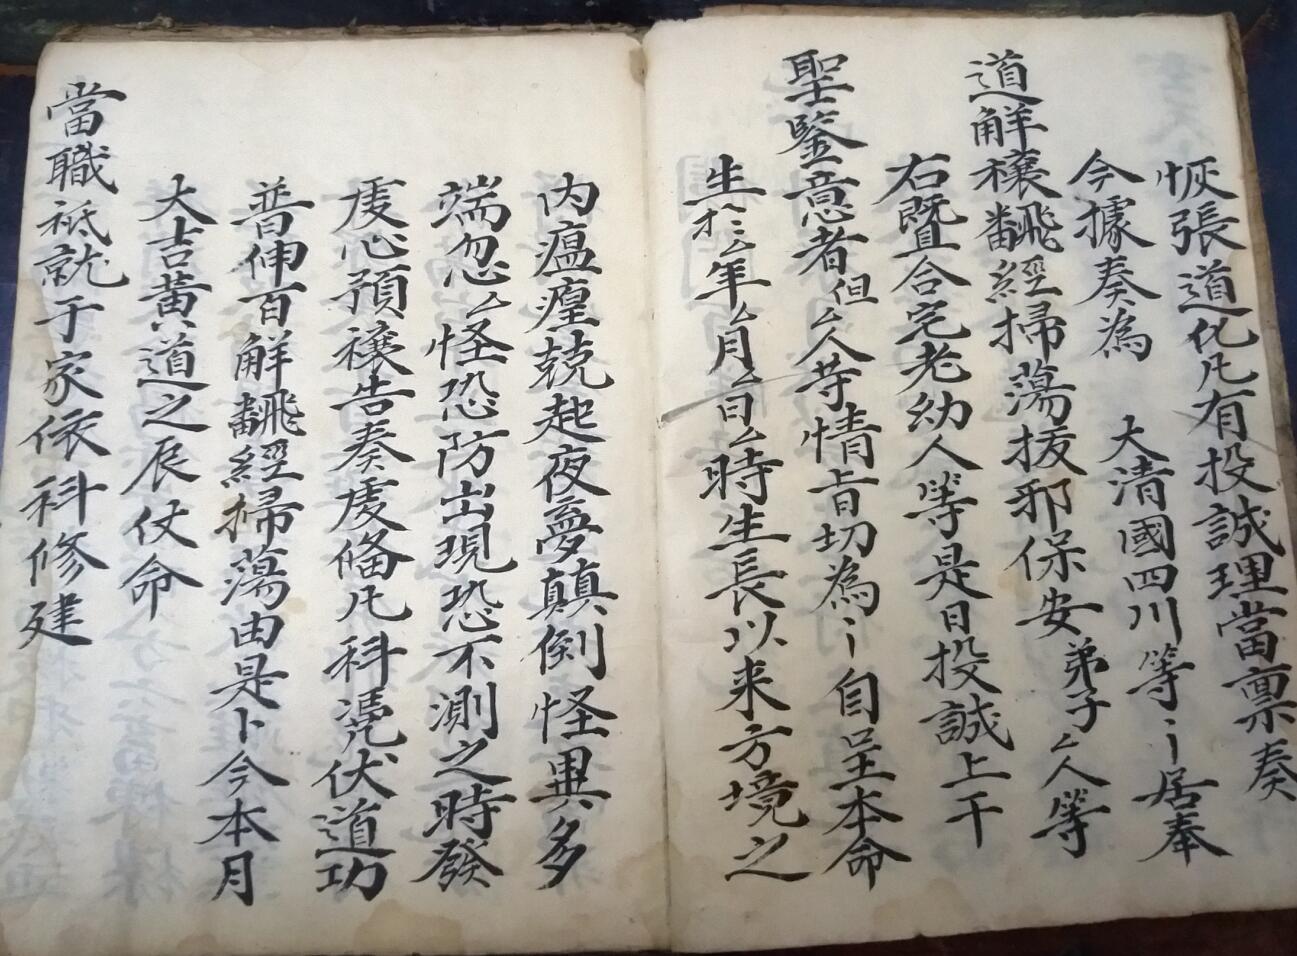 恢張道化凡有投誠理當禀奏
今據奏為 大清國四川等〻居奉
道解禳飜經掃蕩拔邪保安弟子厶人等
右暨合宅老幼人等是日投誠上干
聖鑒意者但厶人等情旨切為〻自呈本命
生於厶年厶月厶日厶時生長以来方境之
内瘟㾮兢起夜夢顛倒怪異多
端忽厶怪恐防出現恐不測之時發
虔心預禳告奏虔俻凡科凴伏道功
普伸百解飜經掃蕩由是卜今本月
大吉黄道之辰仗命
當職祗就于家依科修建